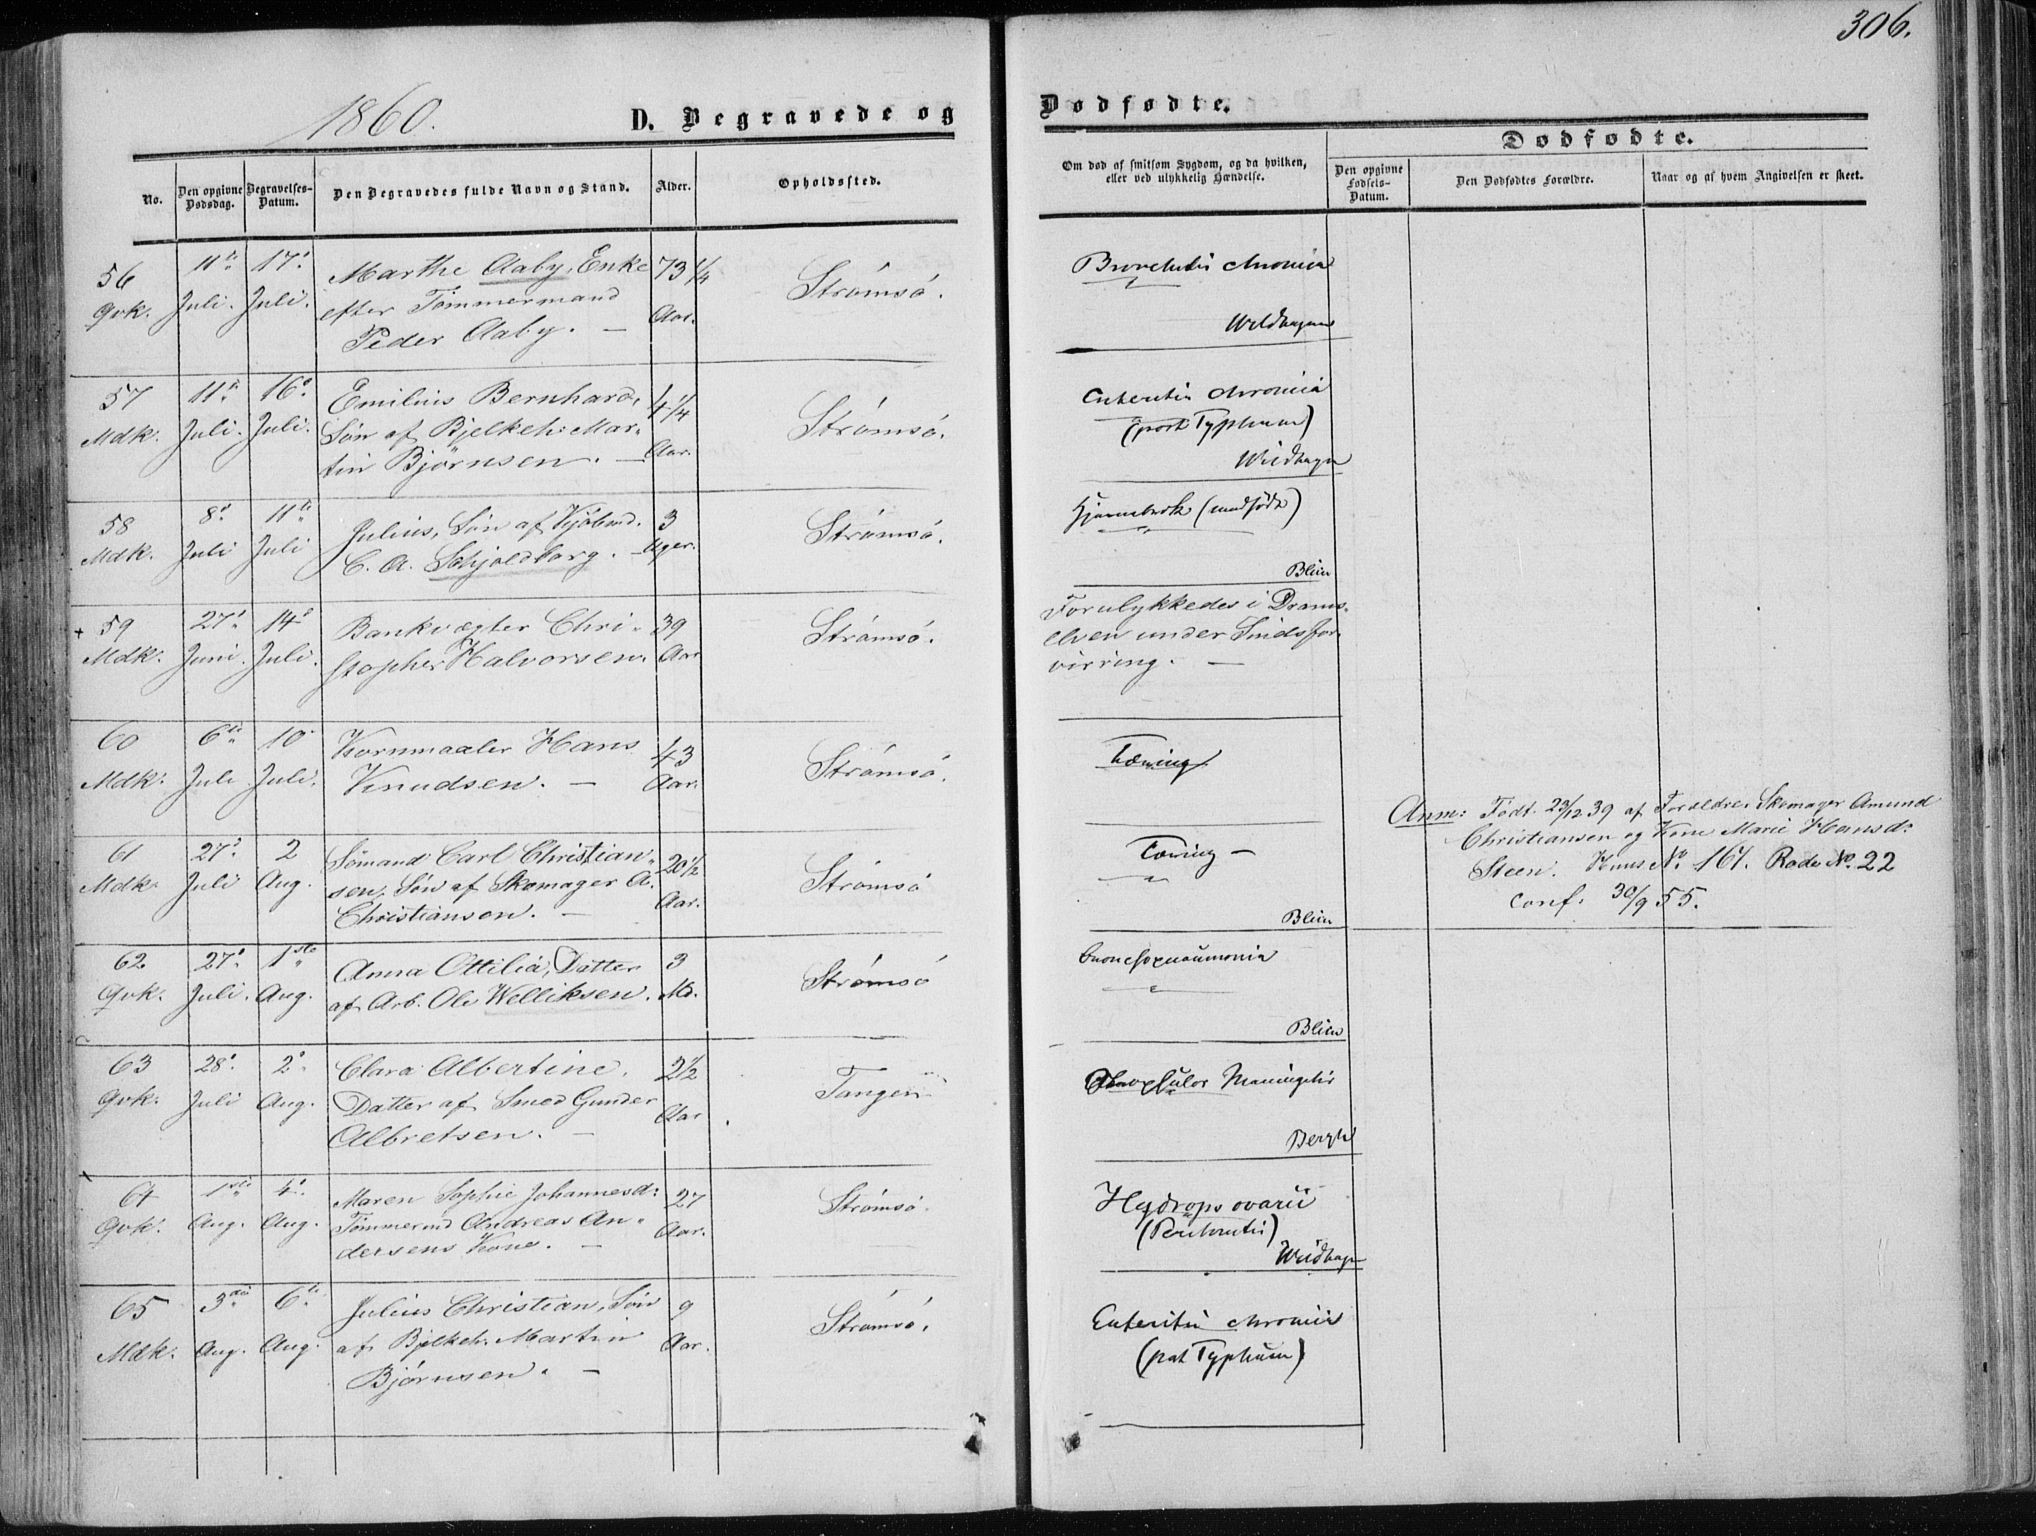 306.
1860.
D. Begravede og Dødfødte.
Dødfødte.
No.
Den opgivne Dødsdag.
Begravelses-Datum.
Den Begravedes fulde Navn og Stand.
Alder.
Opholdssted.
Om død af smitsom Sygdom, og da hvilken,
eller ved ulykkelig Hændelse.
Den opgivne Fødsels-Datum.
Den Dødfødtes Forældre.
Naar og af hvem Angivelsen er skeet.
56 11te 17de Marthe Aaby, Enke 73 1/4 Strømsø. Bronchitis chronica
Qvk. Juli. Juli. efter Tømmermand Aar.
Peder Aaby. —
57 11te 16de Emilius Bernhard, 4 1/4 Strømsø. Enteritis chronica
Mdk. Juli. Juli. Søn af Bjelkeh: Mar- Aar. (post Typhum)
tin Bjørnsen. —
58 8de 11te Julius, Søn af Kjøbmd. 3 Strømsø. Hjernebrok (medfødt)
Mdk. Juli Juli C. A. Schjoldborg. — Uger. Blien
59 27de 14de Bankvægter Chri- 39 Strømsø. Forulykkedes i Drams-
Mdk. Juni. Juli. stopher Halvorsen. Aar elven under Sindsfor-
virring. —
60 6te 10 Kornmaaler Hans 43 Strømsø. Tæring
Mdk. Juli Juli. Knudsen. — Aar.
61 27de 2 Sømand Carl Christian- 20 1/2 Strømsø Tæring —
Mdk. Juli Aug. sen, Søn af Skomager A. Aar.
Christiansen. — Blien
Anm: Født 23/12 39 af Forældre Skomager Amund
Christiansen og Kone Marie Hansd:
Steen. Huus No. 167. Rode No. 22
Conf. 30/9 55.
62 27de 1ste Anna Ottilia, Datter 3 Strømsø
Qvk. Juli. Aug. af Arb. Ole Welliksen. Md. Blien
63 28de 2de Clara Albertine, 2 1/2 Tangen Meningitis
Qvk. Juli Aug. Datter af Smed Gunder Aar
Albretsen. — Bergh
64 1ste 4de Maren Sophie Johannesd: 27 Strømsø. Hydrops ovarii
Qvk. Aug. Aug. Tømmermd Andreas An- Aar. (Peritonitis)
dersens Kone. —
65 3die 6te Julius Christian, Søn 9 Strømsø. Enteritis chronica
Mdk. Aug. Aug. af Bjelkeh. Martin Aar. (post Typhum)
Bjørnsen. —